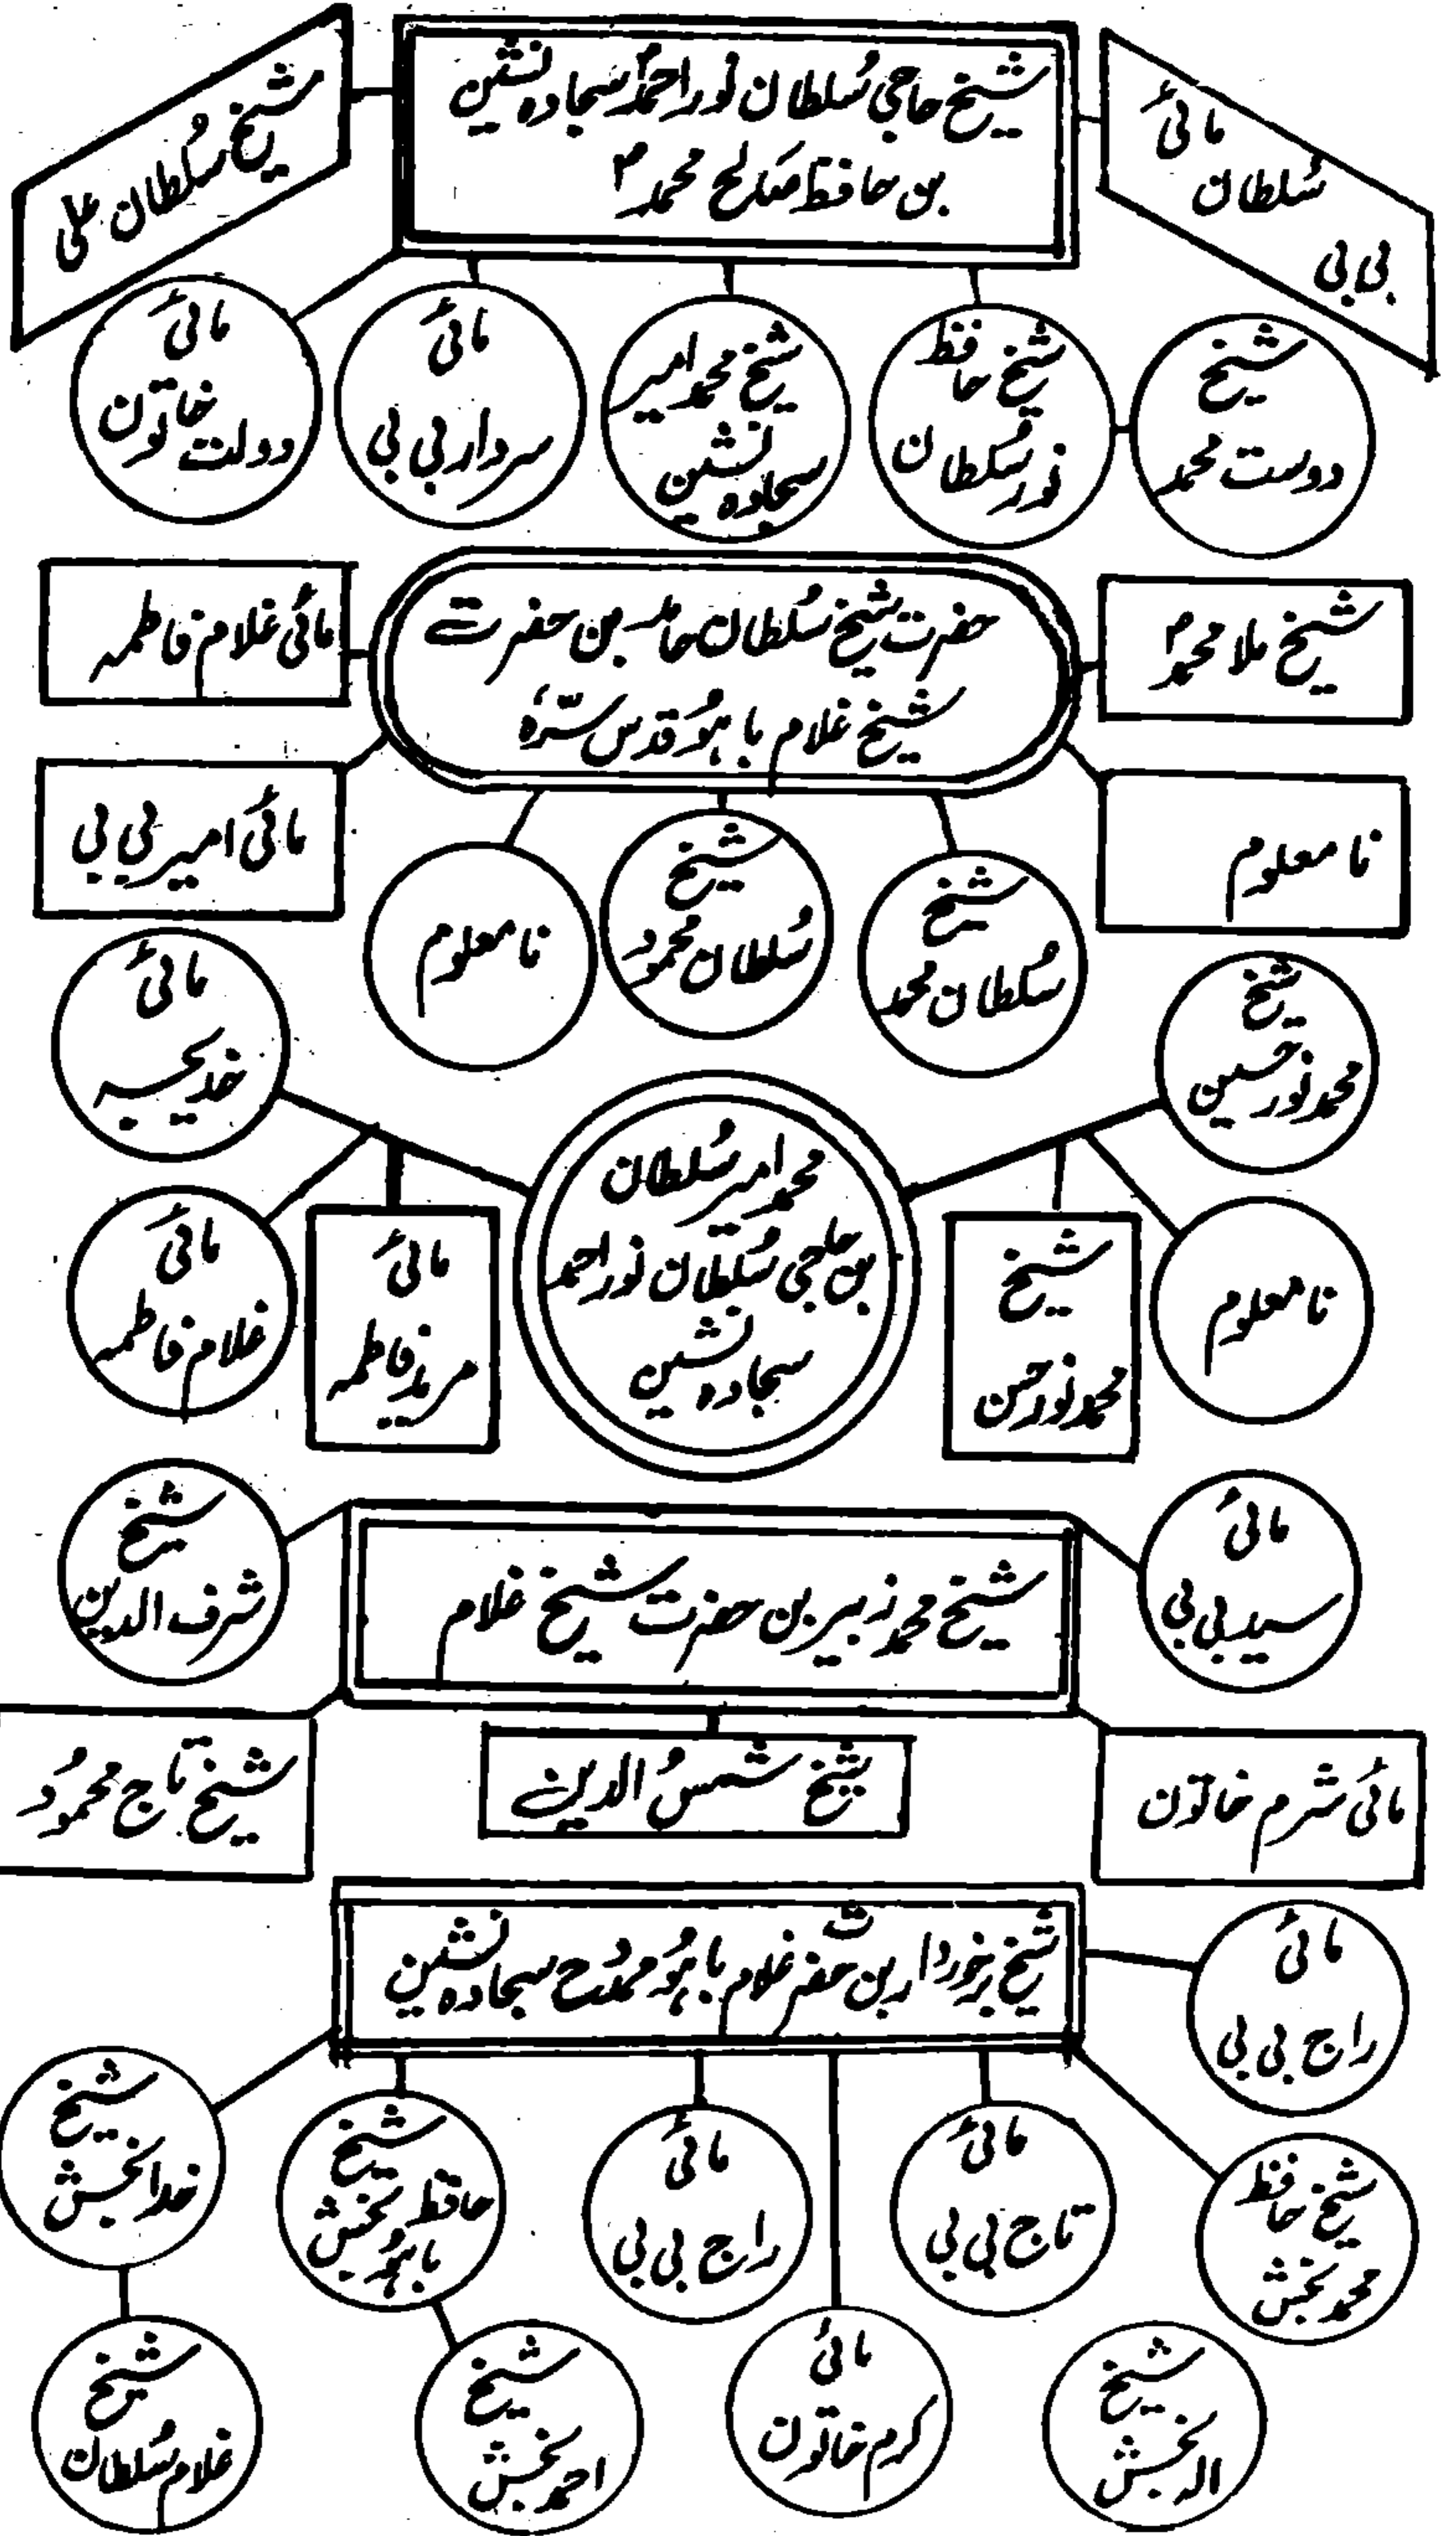 شیخ حاجی سُلطان نور احمدؒ سجادہ نشین
بن حافظ صالح محمدؒ
مائی
سُلطان
بی بی
شیخ سُلطان علی
شیخ
دوست محمد
شیخ حافظ
نور سُلطان
شیخ محمد امیر
سجادہ نشین
مائی
سردار بی بی
مائی
دولت خاتون
حضرت شیخ سُلطان حامد بن حضرت
شیخ غلام باہُو قدس سّرہٗ
شیخ ملا محمدؒ
مائی غلام فاطمہ
نا معلوم
مائی امیر بی بی
شیخ
سُلطان محمد
شیخ
سُلطان محمود
نا معلوم
شیخ
محمد نور حسین
مائی
خدیجہ
محمد امیر سُلطان
بن حاجی سُلطان نور احمد
سجادہ نشین
نا معلوم
شیخ
محمد نور حسن
مائی
مرید فاطمہ
مائی
غلام فاطمہ
مائی
سید بی بی
شیخ محمد زبیر بن حضرت شیخ غلام
شیخ
شرف الدین
مائی شرم خاتون
شیخ شمسُ الدین
شیخ تاج محمودُ
شیخ برخوردار بن حضرت غلام باہُو ممدُوح سجادہ نشین
مائی
راج بی بی
شیخ حافظ
محمد بخش
مائی
تاج بی بی
مائی
راج بی بی
شیخ
حافظ
باہُو بخش
شیخ
خدا بخش
شیخ
الہ بخش
مائی
کرم خاتون
شیخ
احمد بخش
شیخ
غلام سُلطان